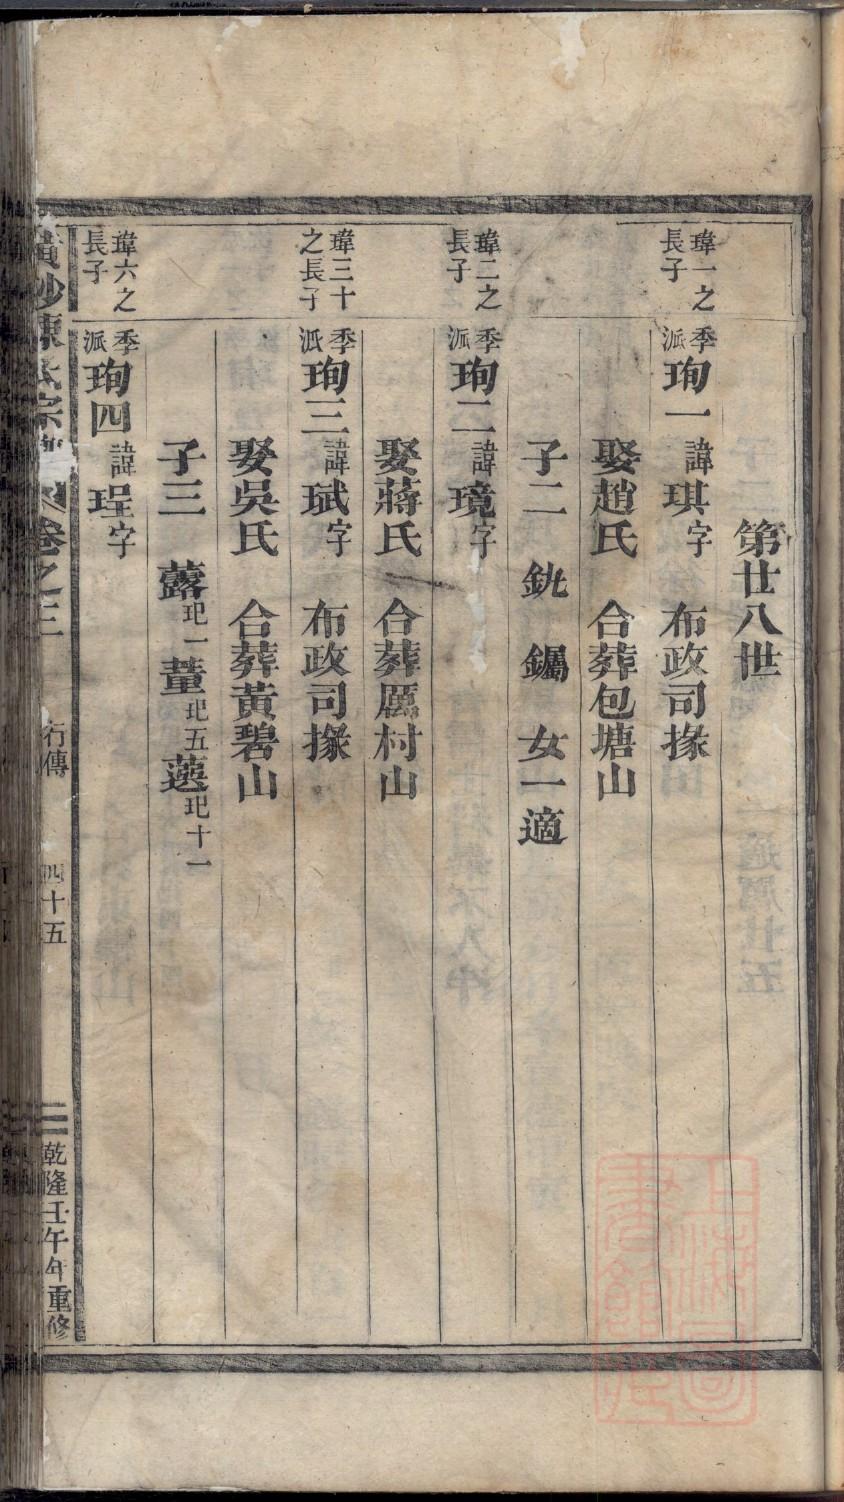 第廿八世
瑋一之長子
季派珣一諱琪字　布政司掾
娶趙氏　合葬包塘山
子二　銚　钃　女一適
瑋二之長子
季派珣二諱璄字
娶蔣氏　合葬厲村山
瑋三十之長子
季派珣三諱珷字　布政司掾
娶吳氏　合葬黃碧山
子三　虈玘一　董玘五　薳玘十一
瑋六之長子
季派珣四諱珵字
陳氏宗　卷之三　行傳　四十五　乾隆壬午年重修
上海圖書館藏